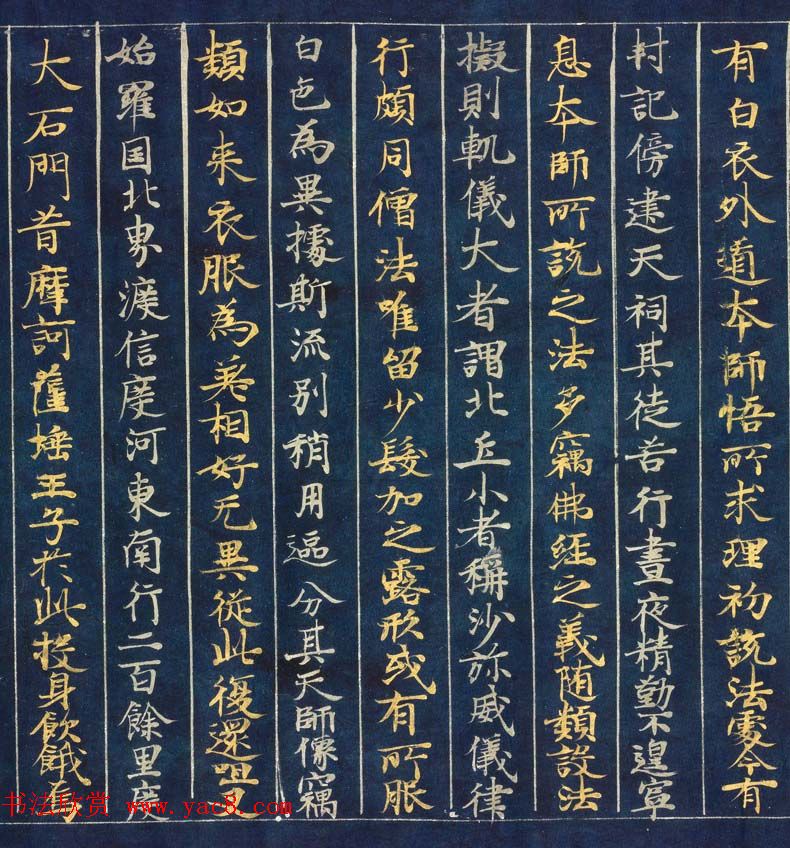 有白衣外道本師悟所求理初說法處今有
封記傍建天祠其徒苦行晝夜精勤不遑寧
息本師所說之法多竊佛經之義随類設法
擬則軌儀大者謂比丘小者稱沙弥威儀律
行頗同僧法唯留少髮加之露形或有所服
白色為異據斯流別稍用區分其天師像竊
類如来衣服為差相好无異從此復還呾叉
始羅国北界渡信度河東南行二百餘里度
大石門昔摩訶薩埵王子於此投身飲餓
书法欣赏 www.yac8.com